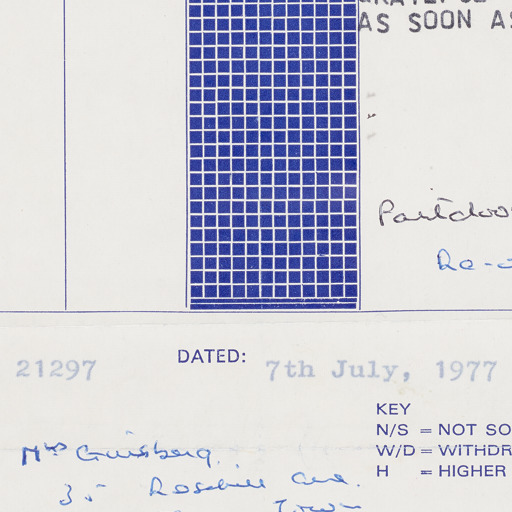 AS SOON AS
Re-
21297 DATED: 7th July, 1977
KEY
N/S = NOT SO
W/D = WITHDR
H = HIGHER
Mrs Guisberg.
35 Rosehill Ave.
Town